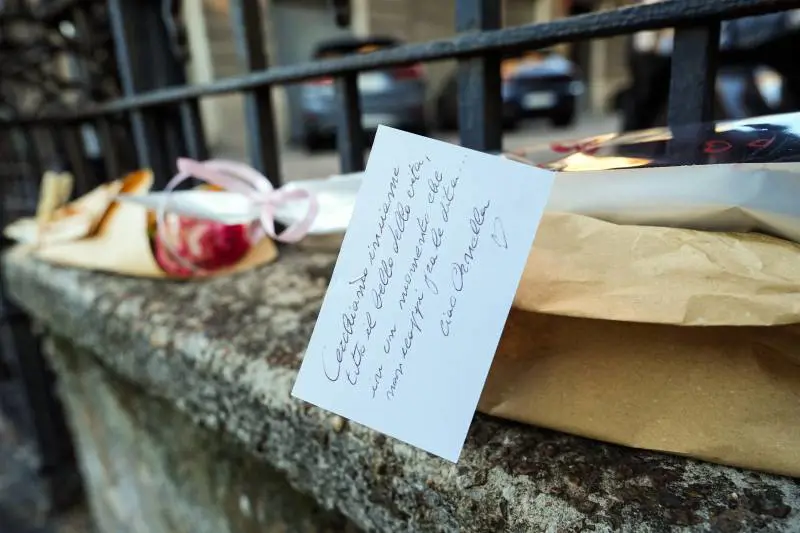 Cerchiamo insieme
tutto il bello della vita,
in un momento che
non scappi tra le dita...
Ciao Ornella